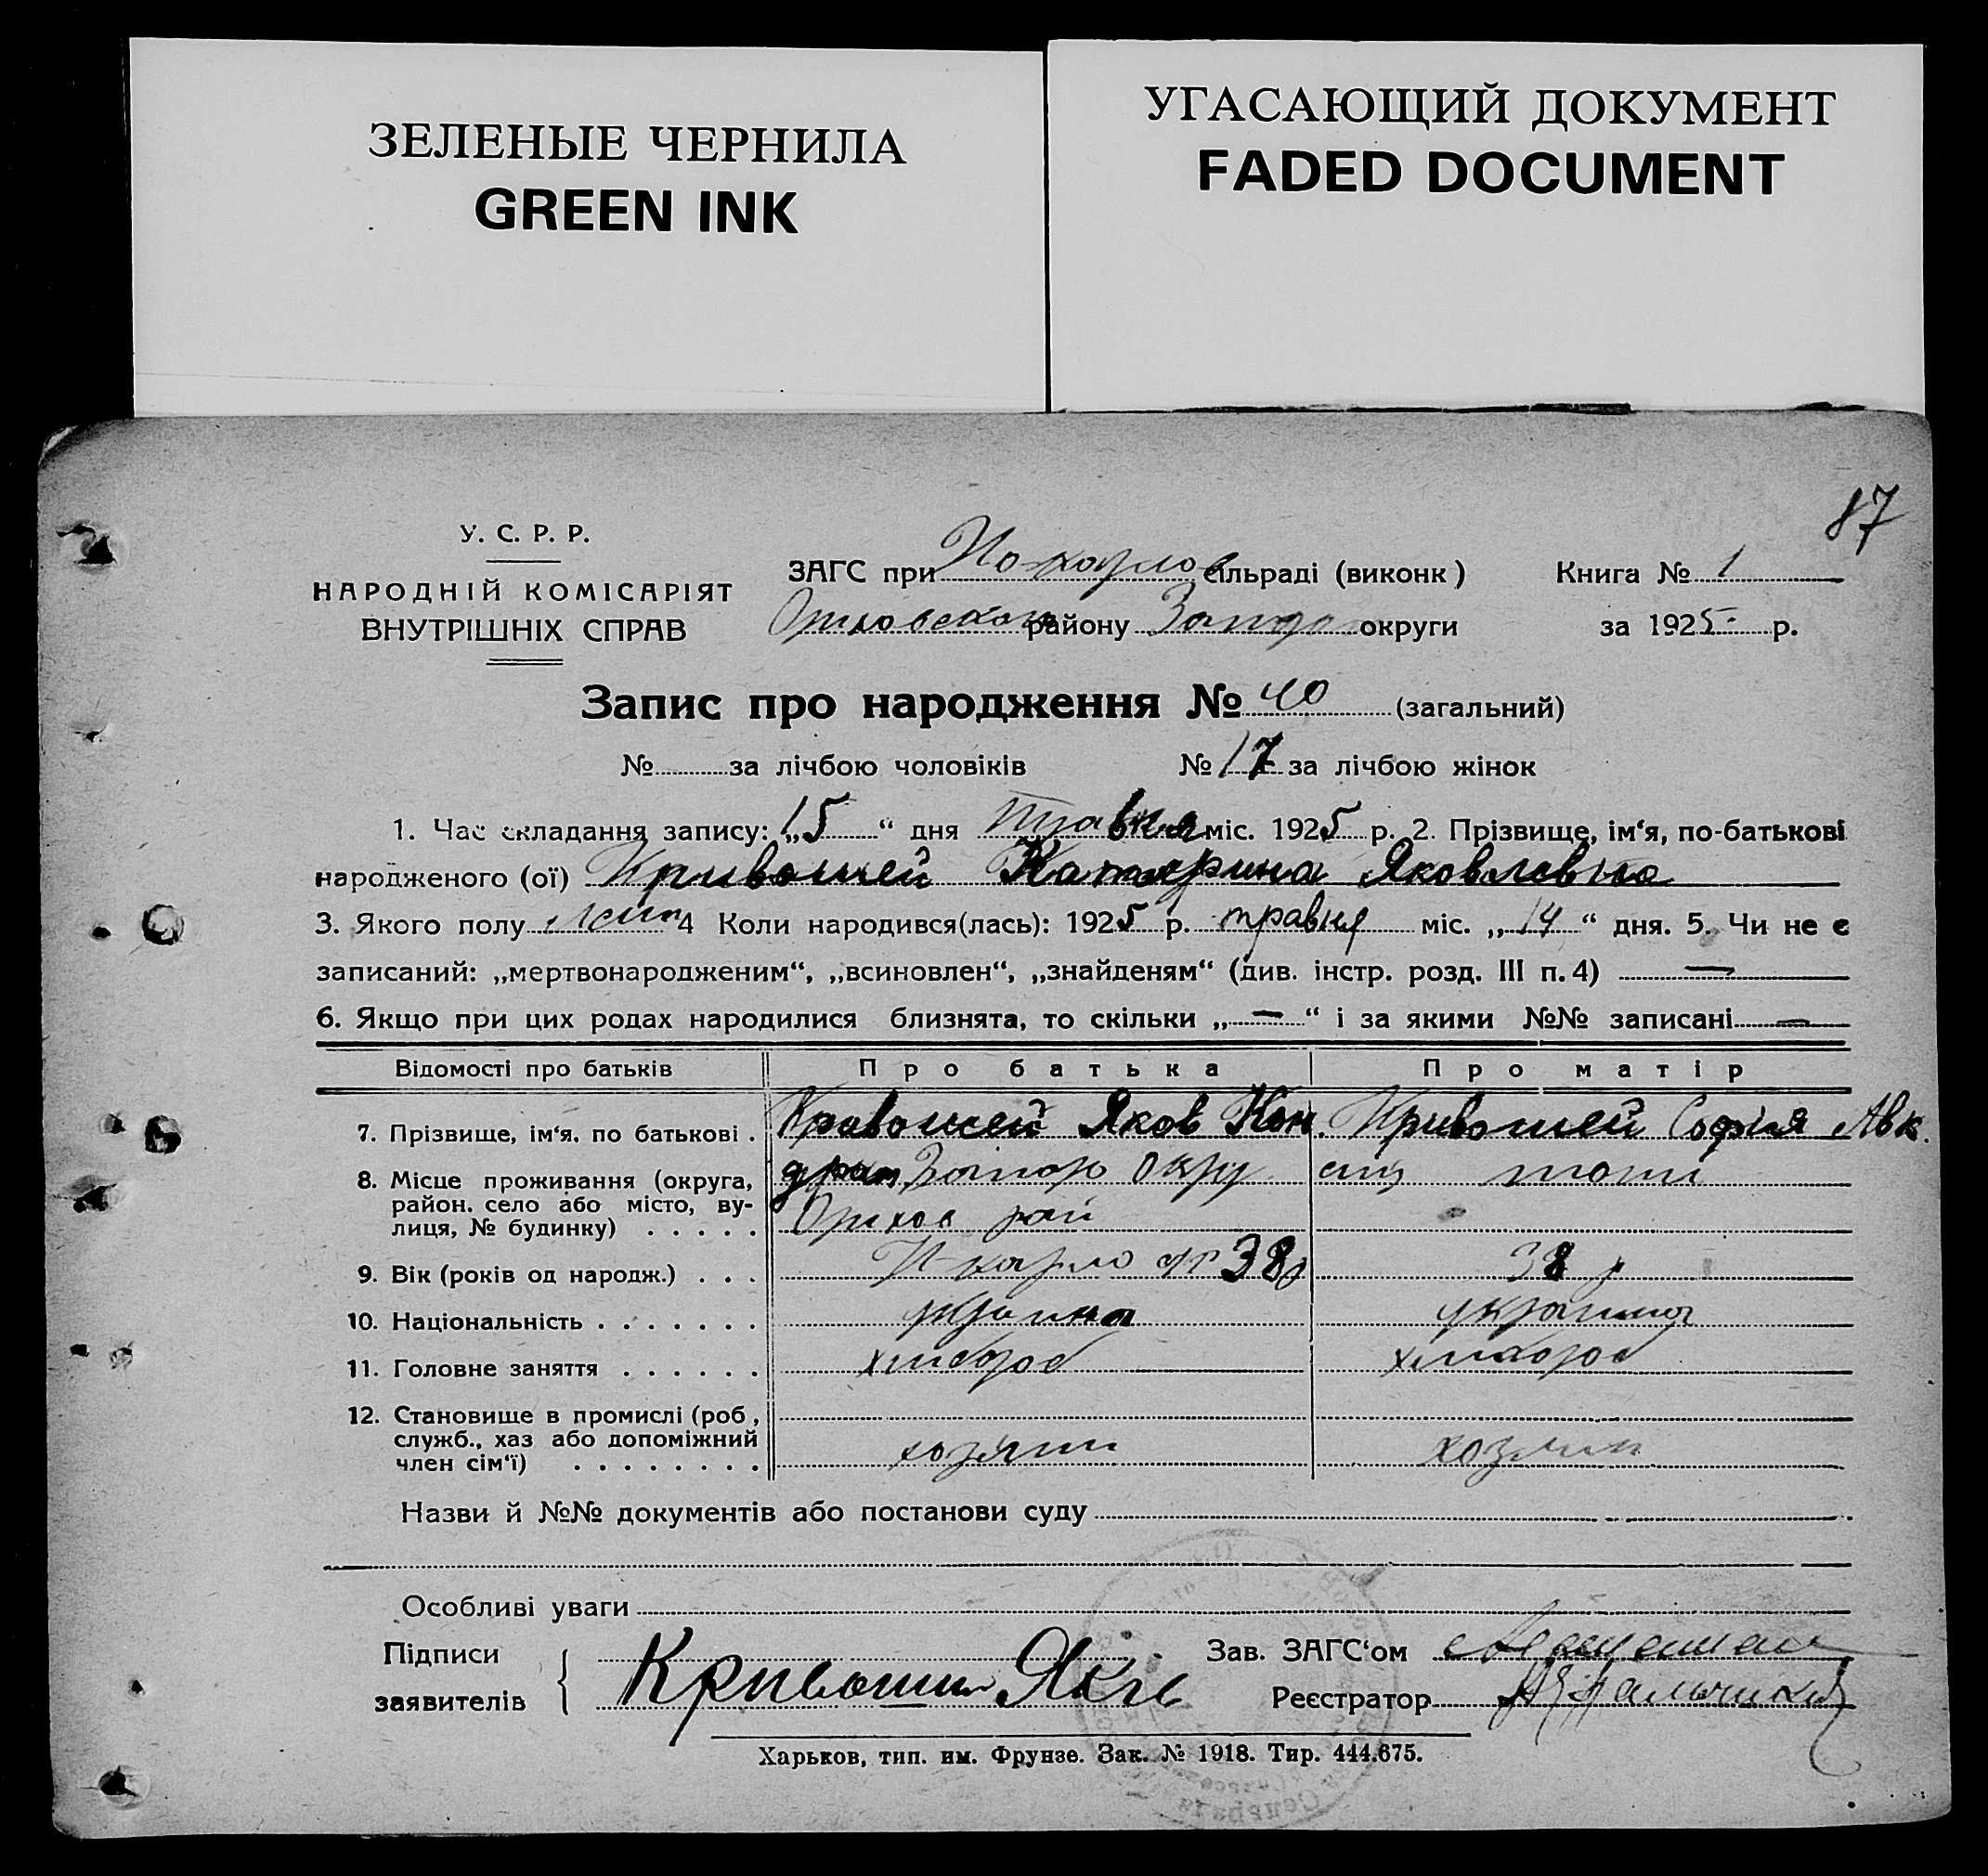 ЗЕЛЕНЫЕ ЧЕРНИЛА
GREEN INK
УГАСАЮЩИЙ ДОКУМЕНТ
FADED DOCUMENT
87
У. С. Р. Р.
НАРОДНІЙ КОМІСАРІЯТ
ВНУТРІШНІХ СПРАВ
ЗАГС при сільраді (виконк) Книга № 1
району округи за 1925 р.
Запис про народження № 40 (загальний)
№ за лічбою чоловіків № 17 за лічбою жінок
1. Час складання запису: „15“ дня травня міс. 1925 р. 2. Прізвище, ім‘я, по-батькові
народженого (ої) Кривошей Катерина Яковлевна
3. Якого полу 4 Коли народився(лась): 1925 р. травня міс. „14“ дня. 5. Чи не є
записаний: „мертвонародженим“, „всиновлен“, „знайденям“ (див. інстр. розд. III п. 4) —
6. Якщо при цих родах народилися близнята, то скільки „—“ і за якими №№ записані —
Відомості про батьків Про батька Про матір
7. Прізвище, ім‘я, по батькові . Кривошей Яков Кон. Кривошей Софія Авк.
8. Місце проживання (округа, драт Запор окру
район. село або місто, ву-
лиця, № будинку) . . . . . Оріхов рай
9. Вік (років од народж.) . . . 38 р 38 р
10. Національність . . . . . . . україна україна
11. Головне заняття . . . . . . хлібороб хлібороб
12. Становище в промислі (роб,
служб., хаз або допоміжний
член сім‘ї) . . . . . . . . хозяин хозяин
Назви й №№ документів або постанови суду
Особливі уваги
Підписи
заявителів Кривошии Яків
Зав. ЗАГС‘ом
Реєстратор
Харьков, тип. им. Фрунзе. Зак. № 1918. Тир. 444.675.